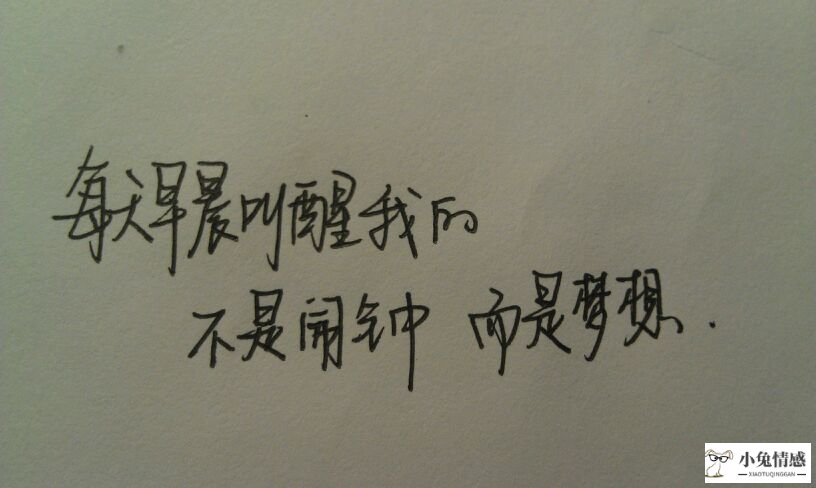 每天早晨叫醒我的
不是闹钟 而是梦想.
小兔情感
XIAOTUQINGGAN